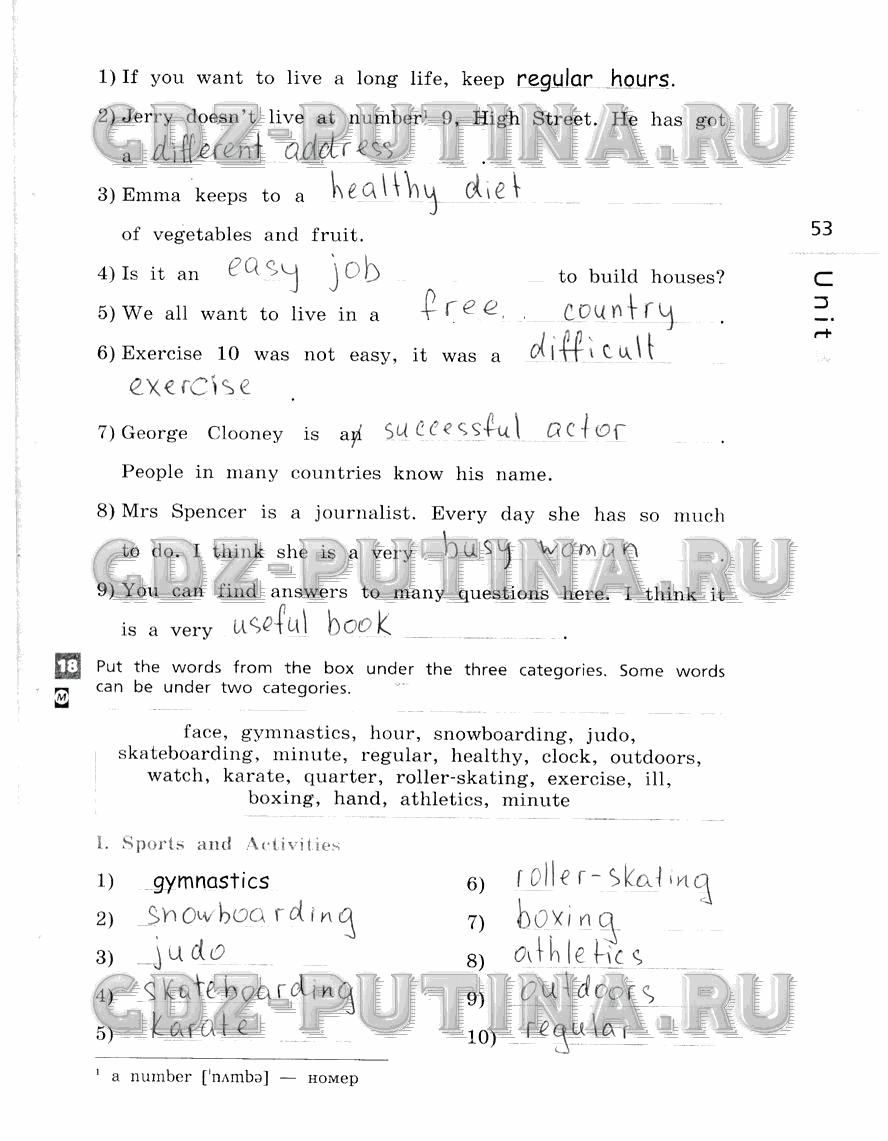 1) If you want to live a long life, keep regular hours.
2) Jerry doesn't live at number¹ 9, High Street. He has got
a different address .
3) Emma keeps to a healthy diet
of vegetables and fruit.
4) Is it an easy job to build houses?
5) We all want to live in a free country .
6) Exercise 10 was not easy, it was a difficult
exercise .
7) George Clooney is an successful actor .
People in many countries know his name.
8) Mrs Spencer is a journalist. Every day she has so much
to do. I think she is a very busy woman .
9) You can find answers to many questions here. I think it
is a very useful book .
53
Unit
GDZ-PUTINA.RU
GDZ-PUTINA.RU
18 Put the words from the box under the three categories. Some words
M can be under two categories.
face, gymnastics, hour, snowboarding, judo,
skateboarding, minute, regular, healthy, clock, outdoors,
watch, karate, quarter, roller-skating, exercise, ill,
boxing, hand, athletics, minute
I. Sports and Activities
1) gymnastics 6) roller-skating
2) snowboarding 7) boxing
3) judo 8) athletics
4) skateboarding 9) outdoors
5) karate 10) regular
GDZ-PUTINA.RU
¹ a number ['nʌmbə] — номер